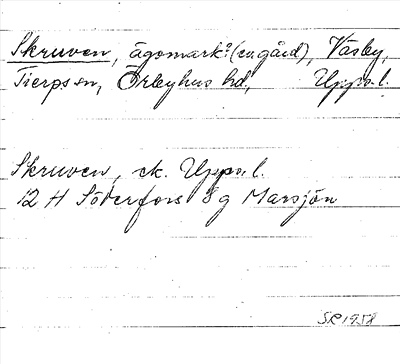 Skruven, ägomark? (ev. gård), Väsby,
Tierps sn, Örbyhus hd, Upps. l.
Skruven, ek. Upps. l.
12 H Söderfors 8 g Marsjön
S.R. 1958